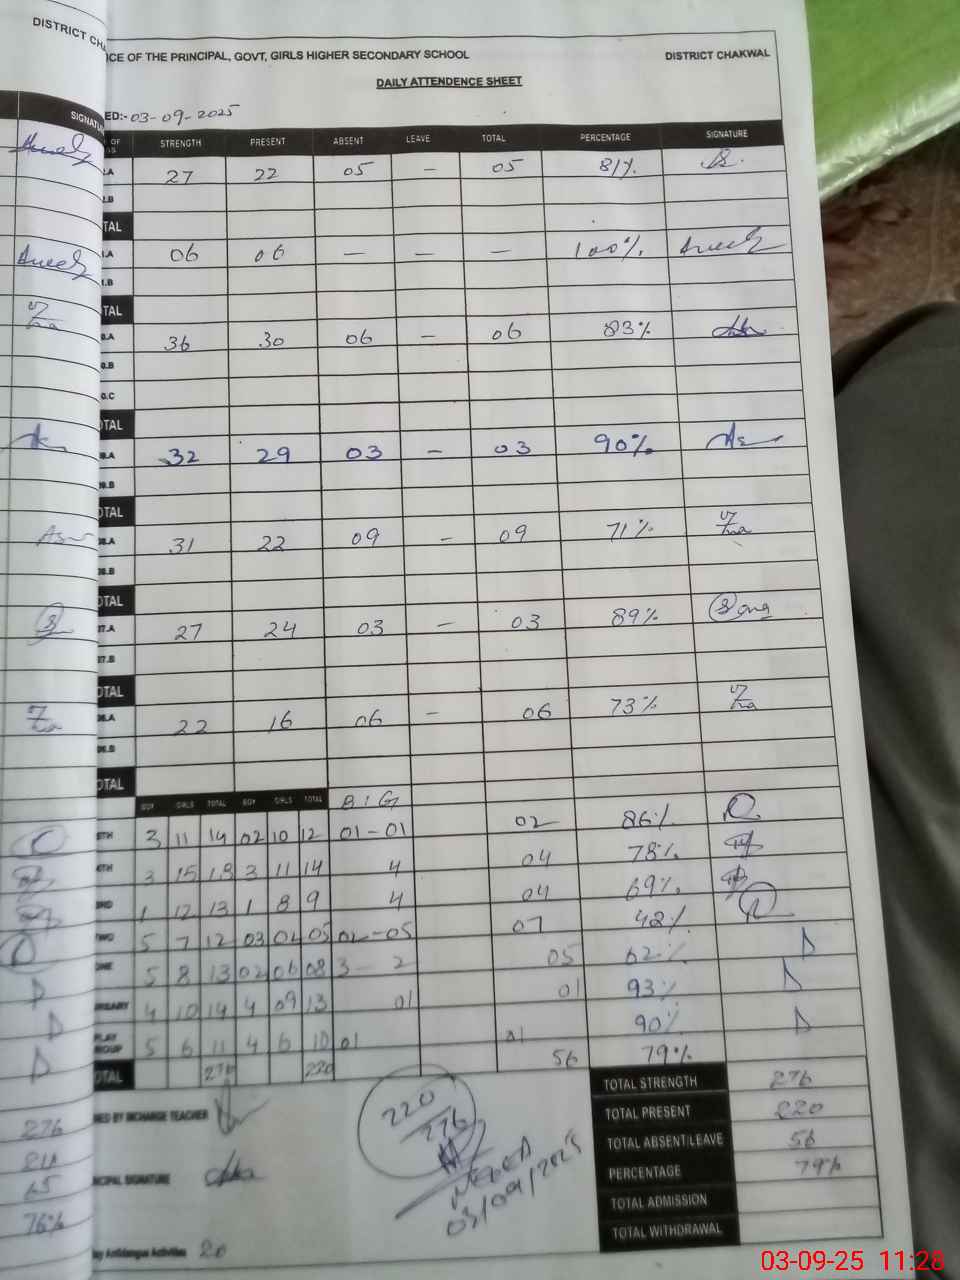 DISTRICT CHA
ICE OF THE PRINCIPAL, GOVT, GIRLS HIGHER SECONDARY SCHOOL DISTRICT CHAKWAL
DAILY ATTENDENCE SHEET
ED:- 03-09-2025
SIGNATU
OF STRENGTH PRESENT ABSENT LEAVE TOTAL PERCENTAGE SIGNATURE
.A 27 22 05 — 05 81%
.B
TAL
.A 06 06 — — — 100%
.B
TAL
.A 36 30 06 — 06 83%
0.B
0.C
OTAL
.A 32 29 03 — 03 90%
09.B
OTAL
.A 31 22 09 — 09 71%
.B
OTAL
07.A 27 24 03 — 03 89%
07.B
OTAL
06.A 22 16 06 — 06 73%
.B
OTAL
BOY GIRLS TOTAL BOY GIRLS TOTAL B / G
5TH 3 11 14 02 10 12 01-01 02 86%
4TH 3 15 18 3 11 14 4 04 78%
RD 1 12 13 1 8 9 4 04 69%
TWO 5 7 12 03 02 05 02-05 07 42%
ONE 5 8 13 02 06 08 3-2 05 62%
RSARY 4 10 14 4 09 13 01 01 93%
PLAY GROUP 5 6 11 4 6 10 01 01 90%
OTAL 276 220 56 79%
NED BY INCHARGE TEACHER
220/276
03/09/2025
NCIPAL SIGNATURE
TOTAL STRENGTH 276
TOTAL PRESENT 220
TOTAL ABSENT/LEAVE 56
PERCENTAGE 79%
TOTAL ADMISSION
TOTAL WITHDRAWAL
276
211
65
76%
ay Antidengue Activities 20
03-09-25 11:28